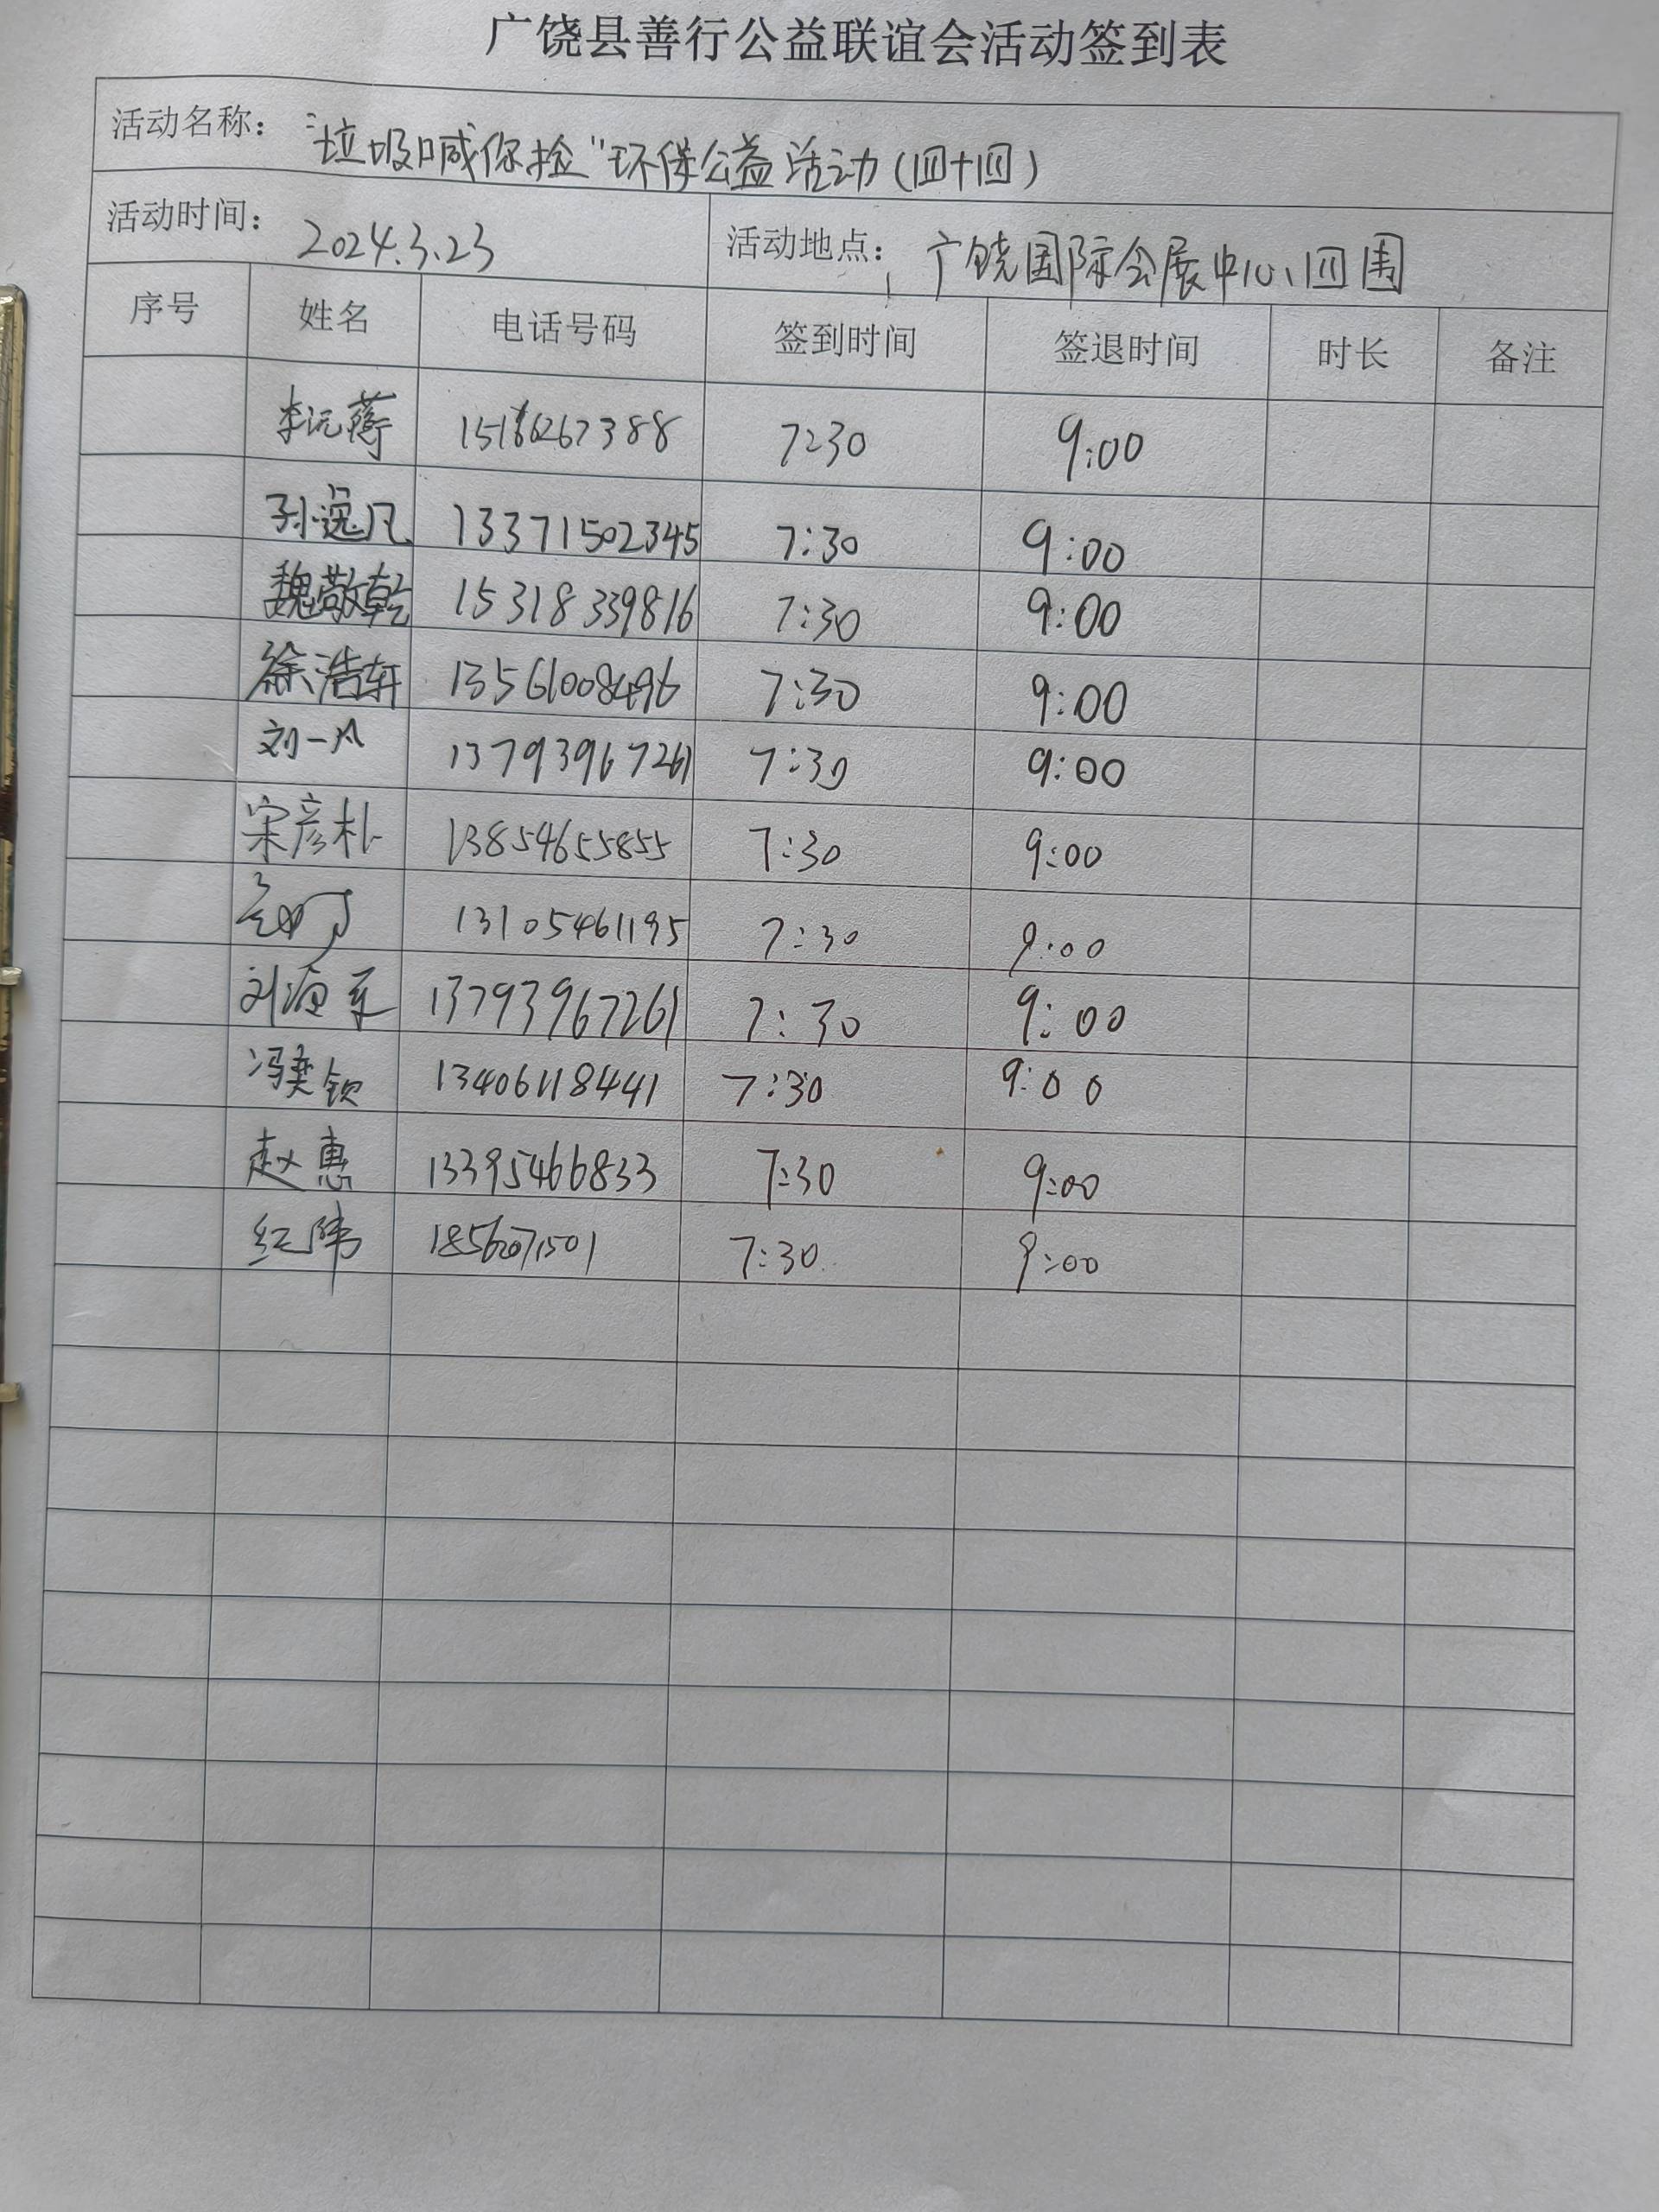 广饶县善行公益联谊会活动签到表
活动名称： "垃圾喊你捡"环保公益活动(四十四)
活动时间： 2024.3.23 活动地点： 广饶国际会展中心四围
序号 姓名 电话号码 签到时间 签退时间 时长 备注
李沅蓦 7230 9:00
孙逸凡 13371502345 7:30 9:00
魏敬乾 15318339816 7:30 9:00
徐浩轩 13561008496 7:30 9:00
刘一凡 13793967261 7:30 9:00
宋彦朴 13854655855 7:30 9:00
13105461195 7:30 9:00
刘海军 13793967261 7:30 9:00
冯奕钦 13406118441 7:30 9:00
赵惠 13395466833 7:30 9:00
红伟 7:30 9:00